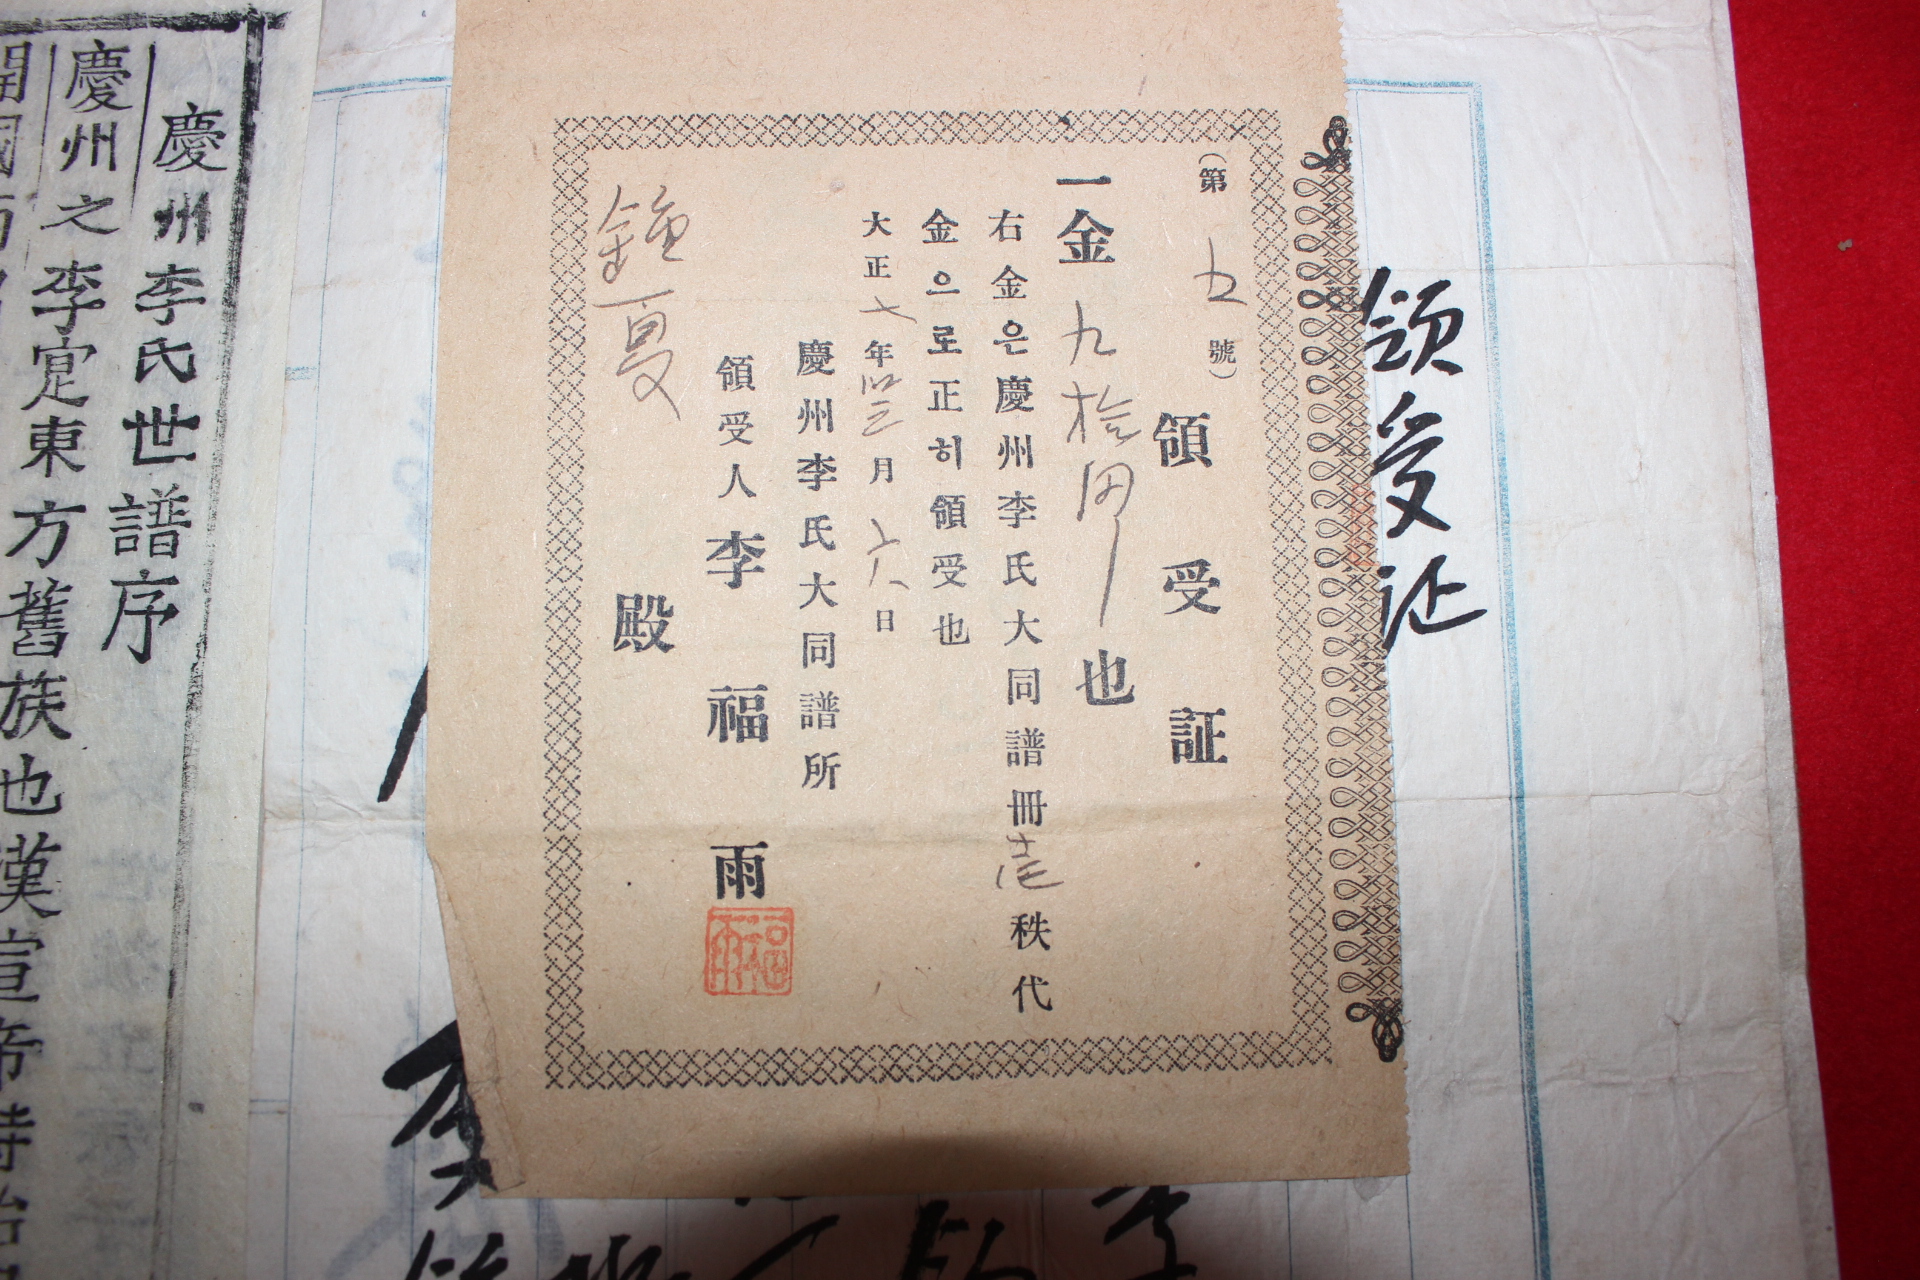 領受証
(第五號)
領受証
一金九拾円也
右金은慶州李氏大同譜冊壱秩代
金으로正히領受也
大正七年 三月十六日
慶州李氏大同譜所
領受人李福雨
福雨
鍾夏
殿
慶州李氏世譜序
慶州之李寔東方舊族也漢宣帝時
開國